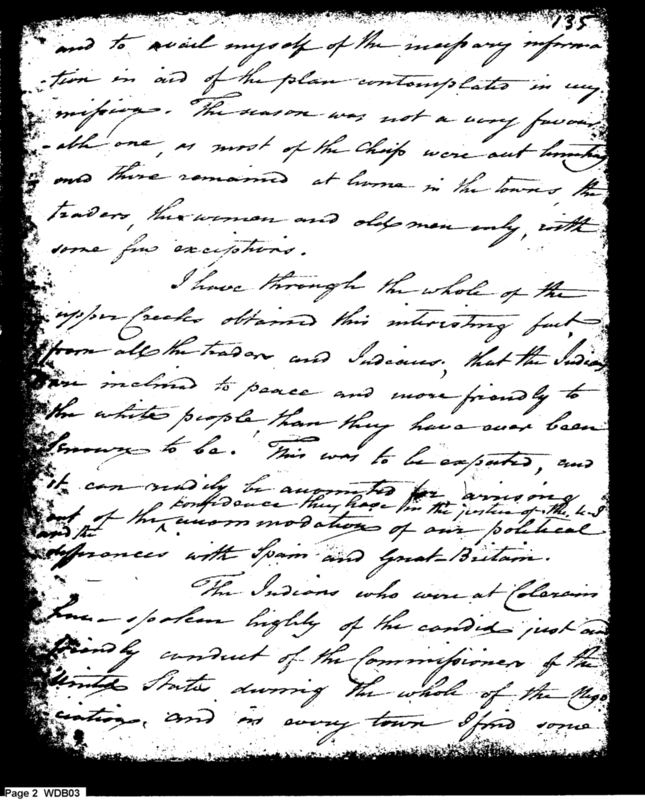 135
and to avail myself of the necessary informa
-tion in aid of the plan contemplated in my
mission. The season was not a very favour
-able one, as most of the Chiefs were out hunting
and there remained at home in the towns, the
traders, the women and old men only, with
some few exceptions.
I have through the whole of the
upper Creeks obtained this interesting fact,
from all the traders and Indians; that the Indians
are inclined to peace and more friendly to
the white people, than they have ever been
known to be. This was to be expected, and
it can readily be accounted for arising
out of the confidence they have in the justice of the U.S
and the accommodation of our political
differences with Spain and Great-Britain.
The Indians who were at Colerain
have spoken highly of the candid just and
friendly conduct of the Commissioners of the
United States during the whole of the Nego
ciation, and in every town I find some
Page 2 WDB03